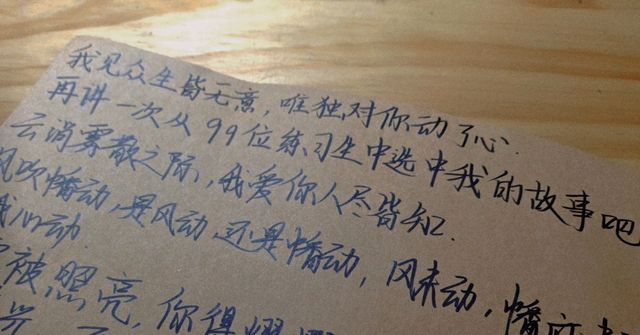 我见众生皆无意，唯独对你动了心．
再讲一次从99位练习生中选中我的故事吧
云消雾散之际，我爱你人尽皆知．
风吹幡动，是风动，还是幡动，风未动，幡
动
被照亮，你得